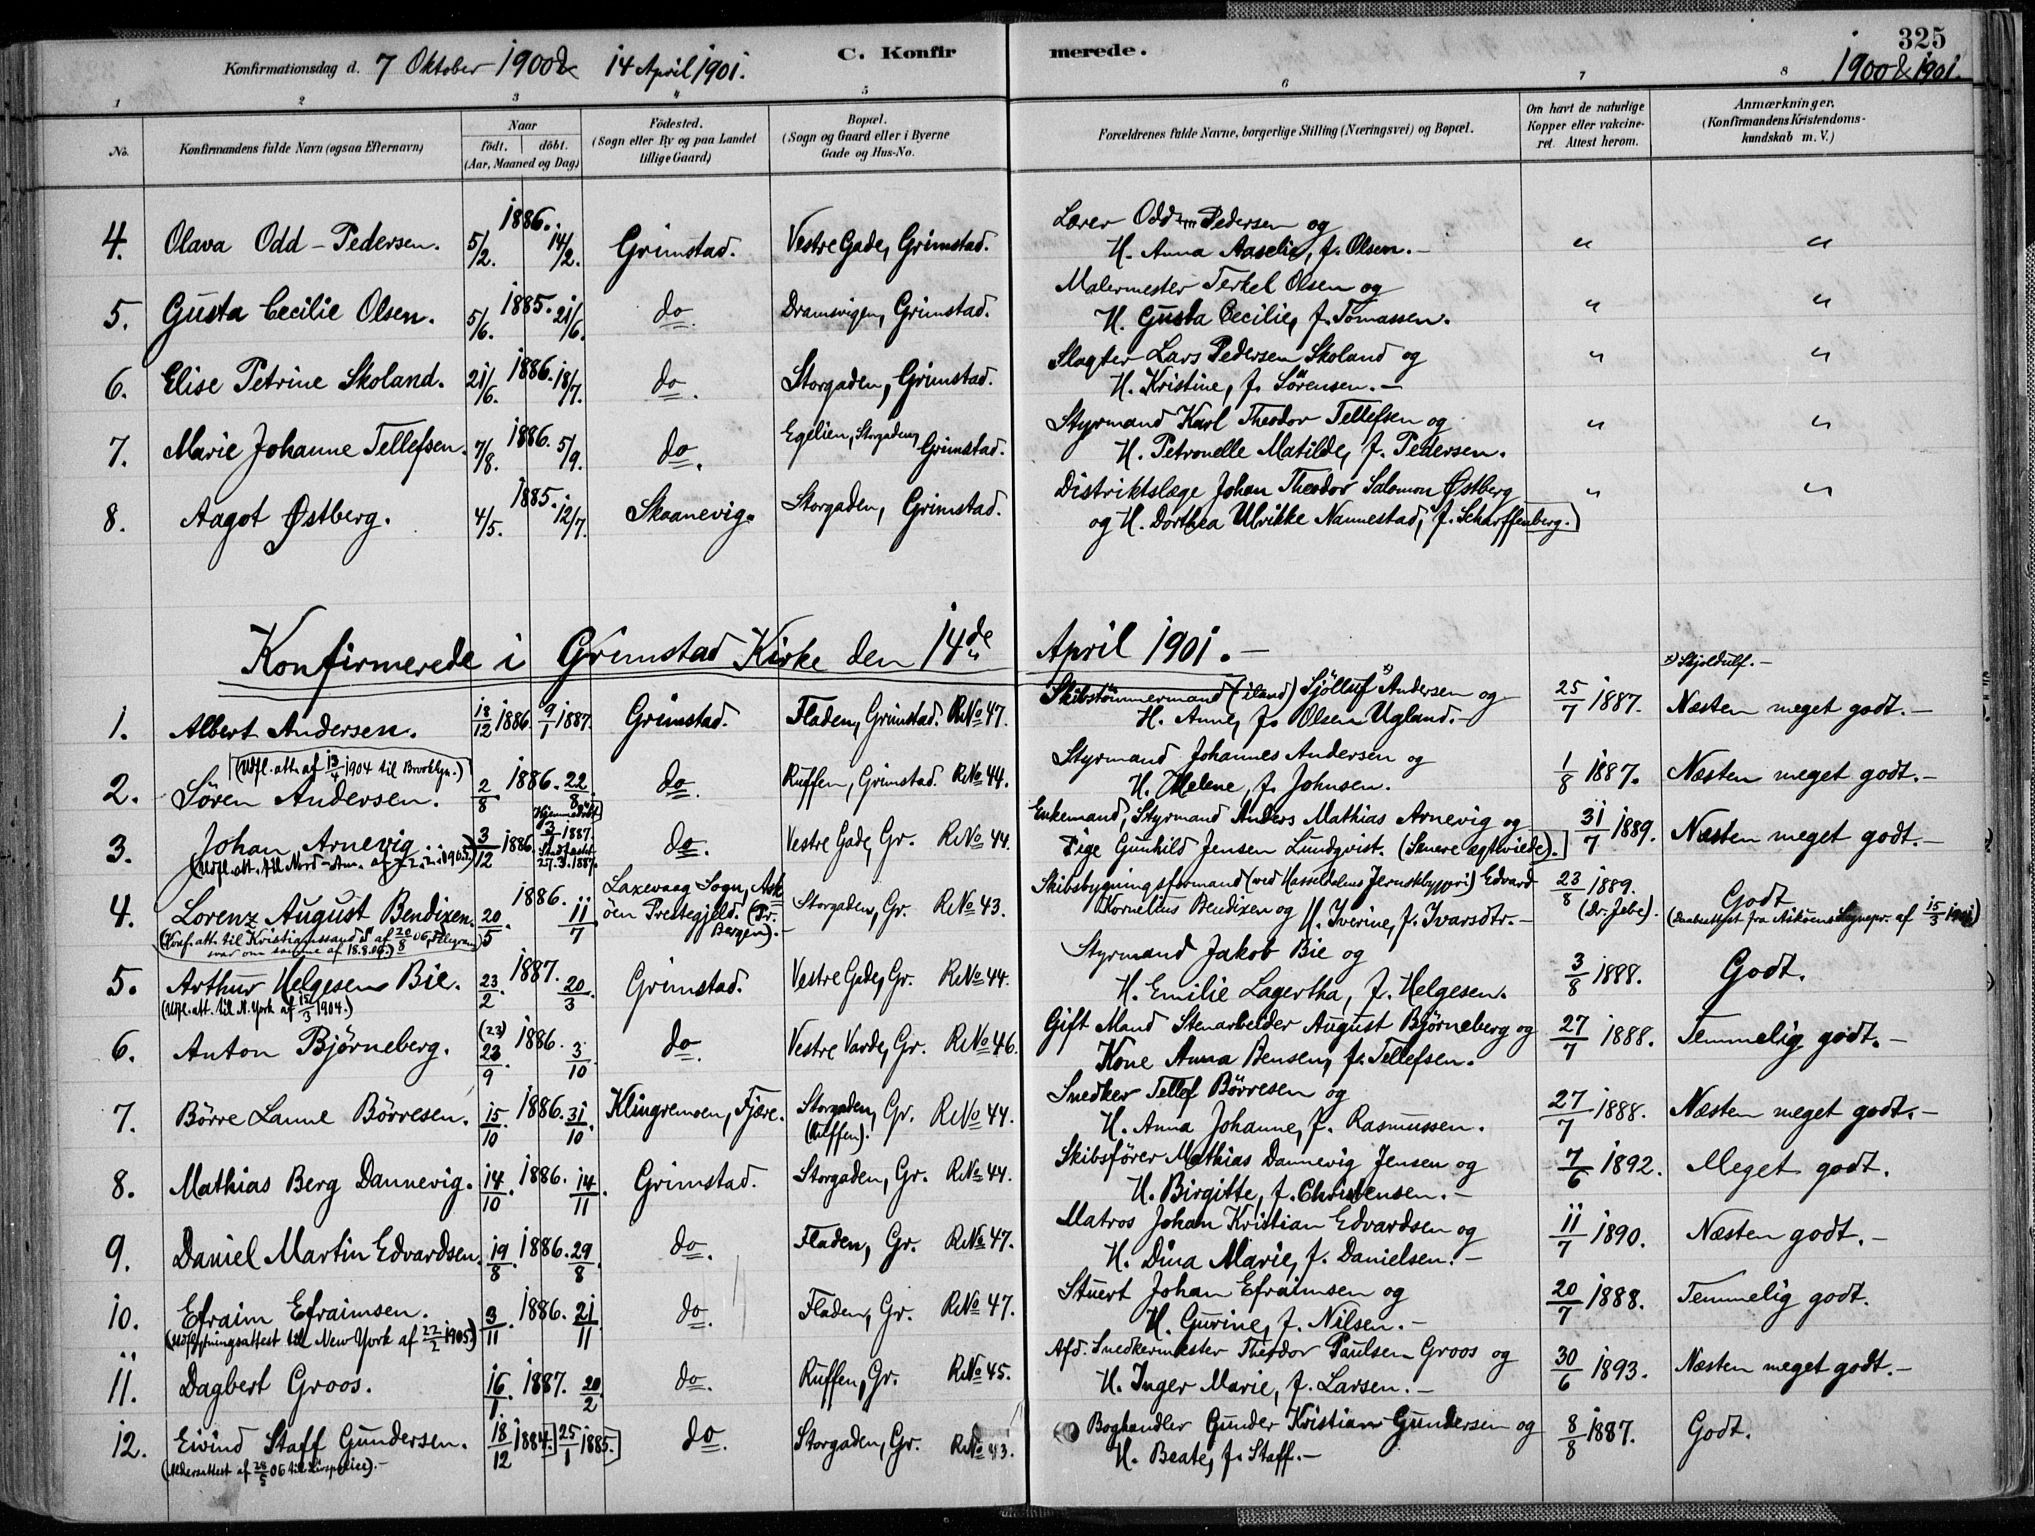 325
Konfirmationsdag d. 7 Oktober 1900 & 14 April 1901. C. Konfirmerede. 1900 & 1901.
1 2 3 4 5 6 7 8
No. Konfirmandens fulde Navn (ogsaa Efternavn) Naar födt. döbt. (Aar, Maaned og Dag) Födested. (Sogn eller By og paa Landet tillige Gaard) Bopæl. (Sogn og Gaard eller i Byerne Gade og Hus-No. Forældrenes fulde Navne, borgerlige Stilling (Næringsvei) og Bopæl. Om havt de naturlige Kopper eller vakcineret. Attest herom. Anmærkninger. (Konfirmandens Kristendomskundskab m. V.)
4. Olava Odd-Pedersen. 5/2. 1886. 14/2. Grimstad. Vestre Gade, Grimstad. Lærer Odd Pedersen og H. Anna Aaselie, f. Olsen.- " "
5. Gusta Cecilie Olsen. 5/6. 1885. 21/6. do. Dramsvigen, Grimstad. Malermester Terkel Olsen og H. Gusta Cecilie, f. Tomassen. " "
6. Elise Petrine Skoland. 21/6. 1886. 18/7. do. Storgaden, Grimstad. Slagter Lars Pedersen Skoland og H. Kristine, f. Sörensen.- " "
7. Marie Johanne Tellefsen. 7/8. 1886. 5/9. do. Egelien, Storgaden, Grimstad. Styrmand Karl Theodor Tellefsen og H. Petronelle Matilde, f. Pedersen. " "
8. Aagot Østberg. 4/5. 1885. 12/7. Skaanevig. Storgaden, Grimstad. Distriktslæge Johan Theodor Salomon Østberg og H. Dorthea Ulrikke Nannestad, f. Scharffenberg. " "
Konfirmerede i Grimstad Kirke den 14de April 1901.-
x) Skjoldulf.-
1. Albert Andersen. 18/12 1886. 9/1 1887. Grimstad. Fladen, Grimstad. R.No 47. Skibstömmermand (iland) Sjöllulf x) Andersen og H. Anne, f. Olsen Ugland.- 25/7 1887. Næsten meget godt.-
(Udfl. att. af 13/4 1904 til Brooklyn.)
2. Sören Andersen. 2/8 1886. 22/8 do. Ruffen, Grimstad. R.No 44. Styrmand Johannes Andersen og H. Helene, f. Johnsen. 1/8 1887. Næsten meget godt.-
3. Johan Arnevig 3/12 1886. Hjemmedöbt 3/1 1887. Stadfæstet 27.3.1887. do. Vestre Gade, Gr. R.No 44. Enkemand, Styrmand Anders Mathias Arnevig og Pige Gunhild Jensen Lundqvist. (Senere ægteviede). 31/7 1889. Næsten meget godt.-
(Udfl. att. til Nord-Am. af 1905.)
4. Lorenz August Bendixen. 20/5 1886. 11/7 Laxevaag Sogn, Asköen Prestegjeld. (Pr. Bergen).- Storgaden, Gr. R.No 43. Skibsbygningsformand (ved Hasseldalens Jernskbyggeri) Edvard Kornelius Bendixen og H. Iverine, f. Ivarsdtr.- 23/8 1889. (Dr. Jebe). Godt (Daabattest fra Askoens Sognepr. af 15/3 1901)
(Konf. att. til Kristianssand S af 20/8 06, Telegram svar om samme af 18.8.06.)
5. Arthur Helgesen Bie. 23/2. 1887. 20/3. Grimstad. Vestre Gade, Gr. R.No 44. Styrmand Jakob Bie og H. Emilie Lagertha, f. Helgesen. 3/8 1888. Godt.
(Udfl. att. til N. York af 15/3 1904.)
6. Anton Björneberg. (23) 23/9. 1886. 3/10 do. Vestre Varde, Gr. R.No 46. Gift Mand Stenarbeider August Björneberg og Kone Anna Bensen, f. Tellefsen. 27/7 1888. Temmelig godt.-
7. Börre Lanne Börresen. 15/10. 1886. 31/10. Klingremoen, Fjære. Storgaden, Gr. (Ruffen). R.No 44. Snedker Tellef Börresen og H. Anna Johanne, f. Rasmussen. 27/7 1888. Næsten meget godt.-
8. Mathias Berg Dannevig. 14/10. 1886. 14/11 Grimstad. Storgaden, Gr. R.No 44. Skibsförer Mathias Dannevig Jensen og H. Birgitte, f. Christensen.- 7/6 1892. Meget godt.
9. Daniel Martin Edvardsen. 19/8. 1886. 29/8. do. Fladen, Gr. R.No 47. Matros Johan Kristian Edvardsen og H. Dina Marie, f. Danielsen.- 11/7 1890. Næsten godt.-
10. Efraim Efraimsen. 3/11. 1886. 21/11 do. Fladen, Gr. R.No 47. Stuert Johan Efraimsen og H. Gurine, f. Nilsen.- 20/7 1888. Temmelig godt.
(Udflytningsattest til New York af 22/2 1905.)
11. Dagbert Groos. 16/1. 1887. 20/2 do. Ruffen, Gr. R.No 45. Afd. Snedkermester Theodor Paulsen Groos og H. Inger Marie, f. Larsen.- 30/6 1893. Næsten meget godt.-
12. Eivind Staff Gundersen. 18/12 1884. 25/1 1885. do. Storgaden, Gr. R.No 43. Boghandler Gunder Kristian Gundersen og H. Beate, f. Staff.- 8/8 1887. Godt.
(Aldersattest af 28/5 06 til).-